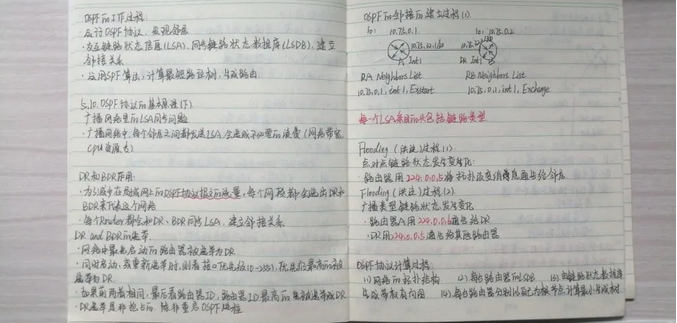 OSPF的工作过程
· 运行OSPF协议,发现邻居
· 交互链路状态信息(LSA),同步链路状态数据库(LSDB),建立
邻接关系
· 运用SPF算法,计算最短路径树,生成路由
5.10.OSPF协议的基本原理(下)
广播网络里的LSA同步问题
· 广播网络中,每个邻居之间都会发LSA,会造成不必要的浪费(网络带宽,
CPU资源等)
DR和BDR作用:
· 为了减少在局域网上的OSPF协议报文的流量,每个网段都会选出DR和
BDR来代表这个网络
· 每个Router都会和DR、BDR同步LSA,建立邻接关系
DR and BDR的选举
· 网络中最先启动的路由器被选举为DR
· 同时启动,或重新选举时,则看接口优先级(0~255),优先级最高的被
选举为DR
· 如果前两者相同,最后看路由器ID,路由器ID最高的被选举成DR
· DR选举是非抢占的,除非重启OSPF进程
OSPF的邻接的建立过程(1)
lo: 10.75.0.1 lo: 10.75.0.2
A int1 DR int1 B
RA Neighbors List RB Neighbors List
10.75.0.1, int1, Exstart 10.75.0.1, int1, Exchange
每一个LSA里面的都包括链路类型
Flooding (洪泛)过程(1)
点对点链路状态发生变化:
· 路由器用224.0.0.5将拓扑改变消息通告给邻居
Flooding (洪泛)过程(2)
广播类型链路状态发生变化
· 路由器A用224.0.0.6通告给DR
· DR用224.0.0.5通告给其他路由器
OSPF协议计算过程
(1)网络的拓扑结构 (2)每台路由器的LSDB (3)由链路状态数据库
生成带权有向图 (4)每台路由器分别以自己为根节点计算最小生成树